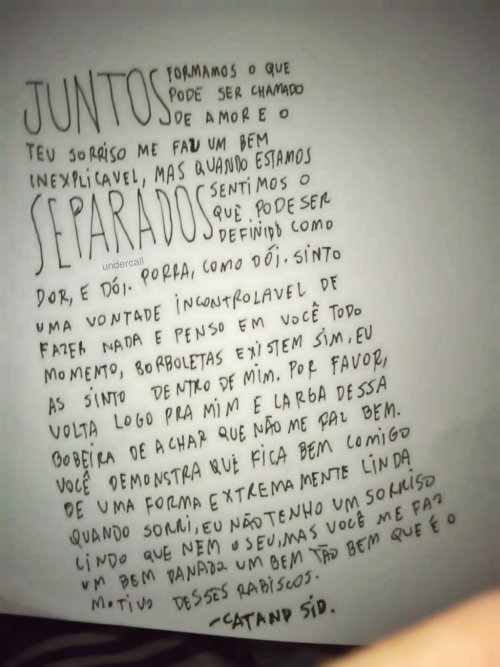 JUNTOS FORMAMOS O QUE
PODE SER CHAMADO
DE AMOR E O
TEU SORRISO ME FAZ UM BEM
INEXPLICAVEL, MAS QUANDO ESTAMOS
SEPARADOS SENTIMOS O
QUE PODE SER
DEFINIDO COMO
undercall
DOR, E DÓI. PORRA, COMO DÓI. SINTO
UMA VONTADE INCONTROLAVEL DE
FAZER NADA E PENSO EM VOCÊ TODO
MOMENTO, BORBOLETAS EXISTEM SIM, EU
AS SINTO DENTRO DE MIM. POR FAVOR,
VOLTA LOGO PRA MIM E LARGA DESSA
BOBEIRA DE ACHAR QUE NÃO ME FAZ BEM.
VOCÊ DEMONSTRA QUE FICA BEM COMIGO
DE UMA FORMA EXTREMAMENTE LINDA
QUANDO SORRI, EU NÃO TENHO UM SORRISO
LINDO QUE NEM O SEU, MAS VOCÊ ME FAZ
UM BEM DANADO UM BEM TÃO BEM QUE É O
MOTIVO DESSES RABISCOS.
-CATAND SID.